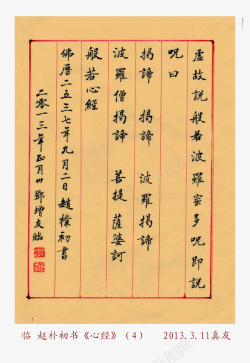 虚故説般若波羅蜜多呪即説
呪曰
揭諦 揭諦 波羅揭諦
波羅僧揭諦 菩提薩婆訶
般若心經
佛曆二五三七年九月二日趙樸初書
二零一三年正月卅鄧增友臨
临 赵朴初书《心经》（4） 2013.3.11真友